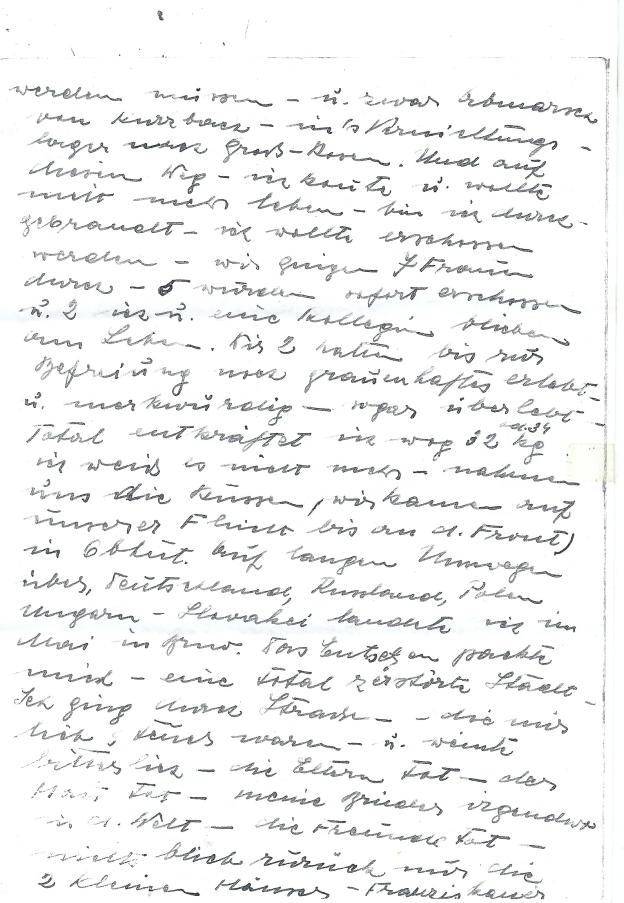 werden müssen – u. zwar Abmarsch
von Kurzbach – in's Vernichtungs-
lager nach Groß-Rosen. Und auf
diesem Weg – ich konte u. wollte
nicht mehr leben – bin ich durch-
gebrandt – ich wollte erschossen
werden – wir gingen 7 Frauen
durch – 5 wurden sofort erschossen
u. 2 ich u. eine Kollegin blieben
am Leben. Wir 2 haben bis zur
Befreiung noch grauenhaftes erlebt –
u. merkwürdig – sogar überlebt –
Total entkräftet ich wog 32 od. 34 kg
ich weiß es nicht mehr – nahmen
uns die Russen, (wir kamen auf
unserer Flucht bis an d. Front)
in Obhut. Auf langen Umwegen
über, Deutschland, Russland, Polen
Ungarn – Slovakei landete ich im
Mai in Brno. Das Entsetzen packte
mich – eine total zerstörte Stadt –
Ich ging durch Strassen – – die mir
lieb & teuer waren – u. weinte
bitterlich – die Eltern tot – der
Mann tot – meine Brüder irgendwo
in d. Welt – die Freunde tot –
nichts blieb zurück nur die
2 kleinen Häuser – Franziskaner